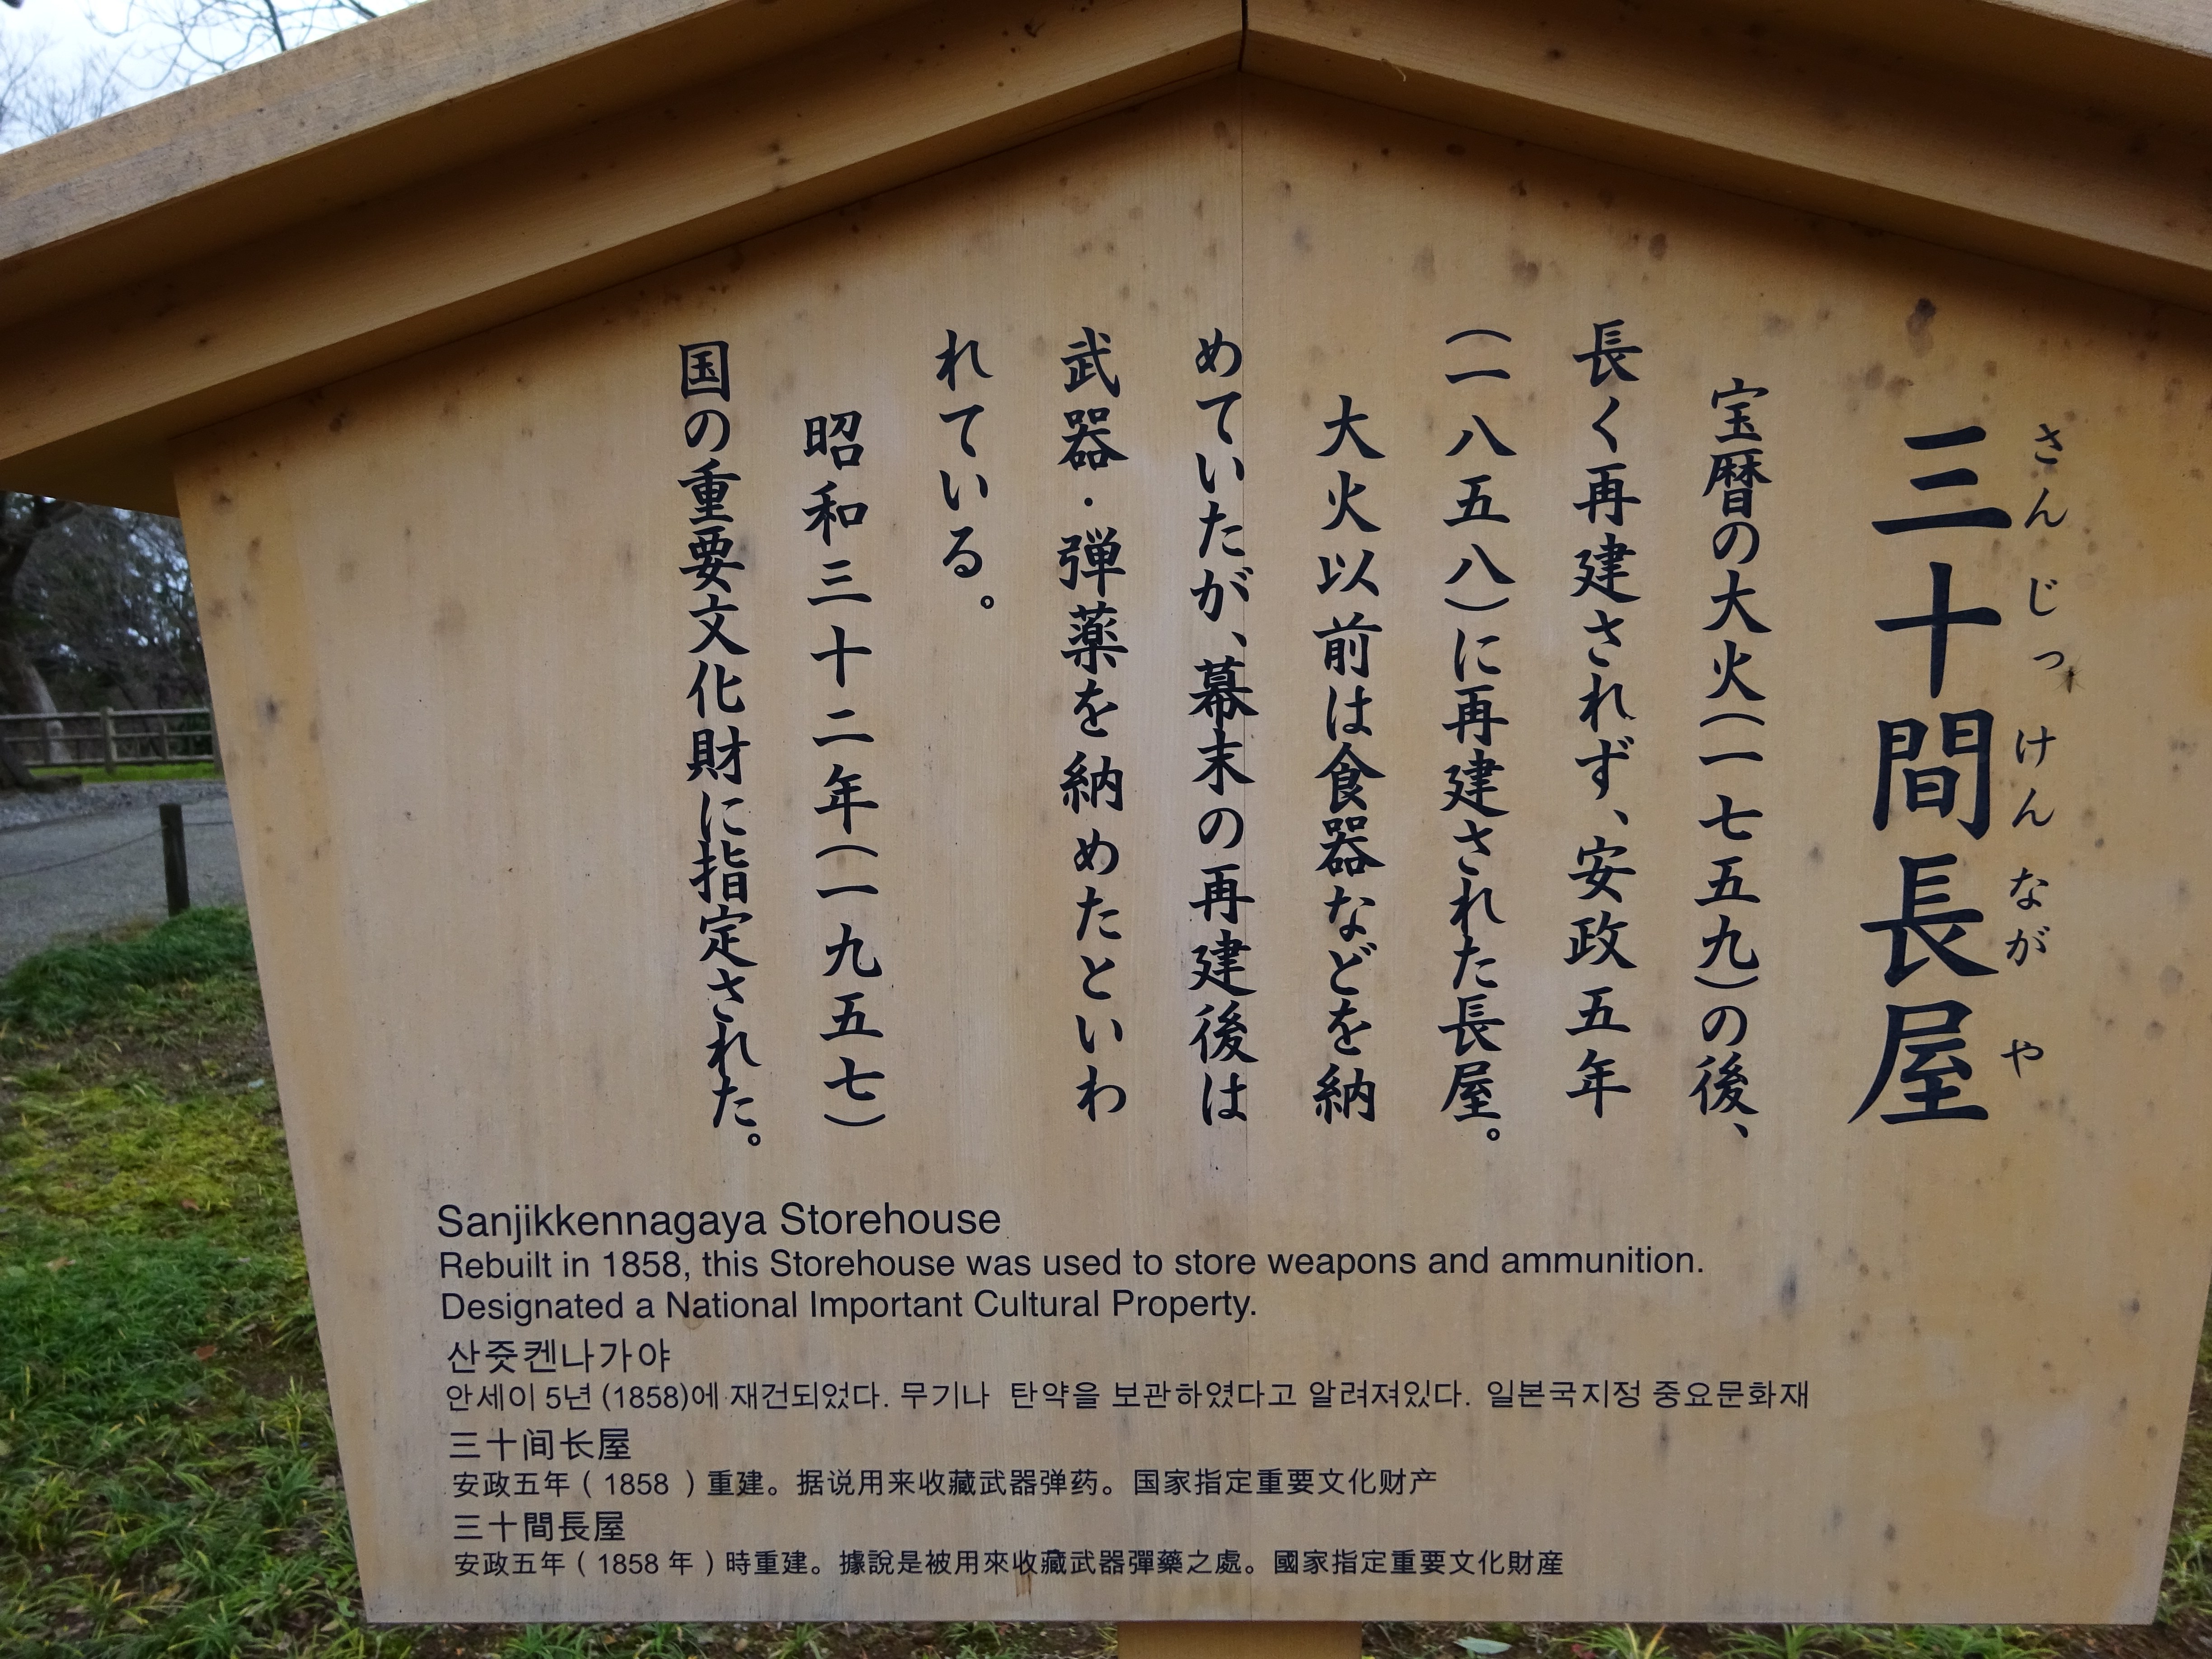 三十間長屋
さんじっけんながや
宝暦の大火(一七五九)の後、
長く再建されず、安政五年
(一八五八)に再建された長屋。
大火以前は食器などを納
めていたが、幕末の再建後は
武器・弾薬を納めたといわ
れている。
昭和三十二年(一九五七)
国の重要文化財に指定された。
Sanjikkennagaya Storehouse
Rebuilt in 1858, this Storehouse was used to store weapons and ammunition.
Designated a National Important Cultural Property.
산줏켄나가야
안세이 5년 (1858)에 재건되었다. 무기나 탄약을 보관하였다고 알려져있다. 일본국지정 중요문화재
三十间长屋
安政五年（1858）重建。据说用来收藏武器弹药。国家指定重要文化财产
三十間長屋
安政五年（1858年）時重建。據說是被用來收藏武器彈藥之處。國家指定重要文化財産